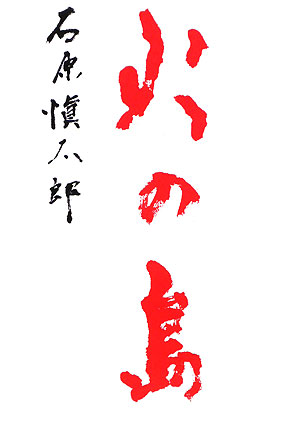 火の島
石原慎太郎